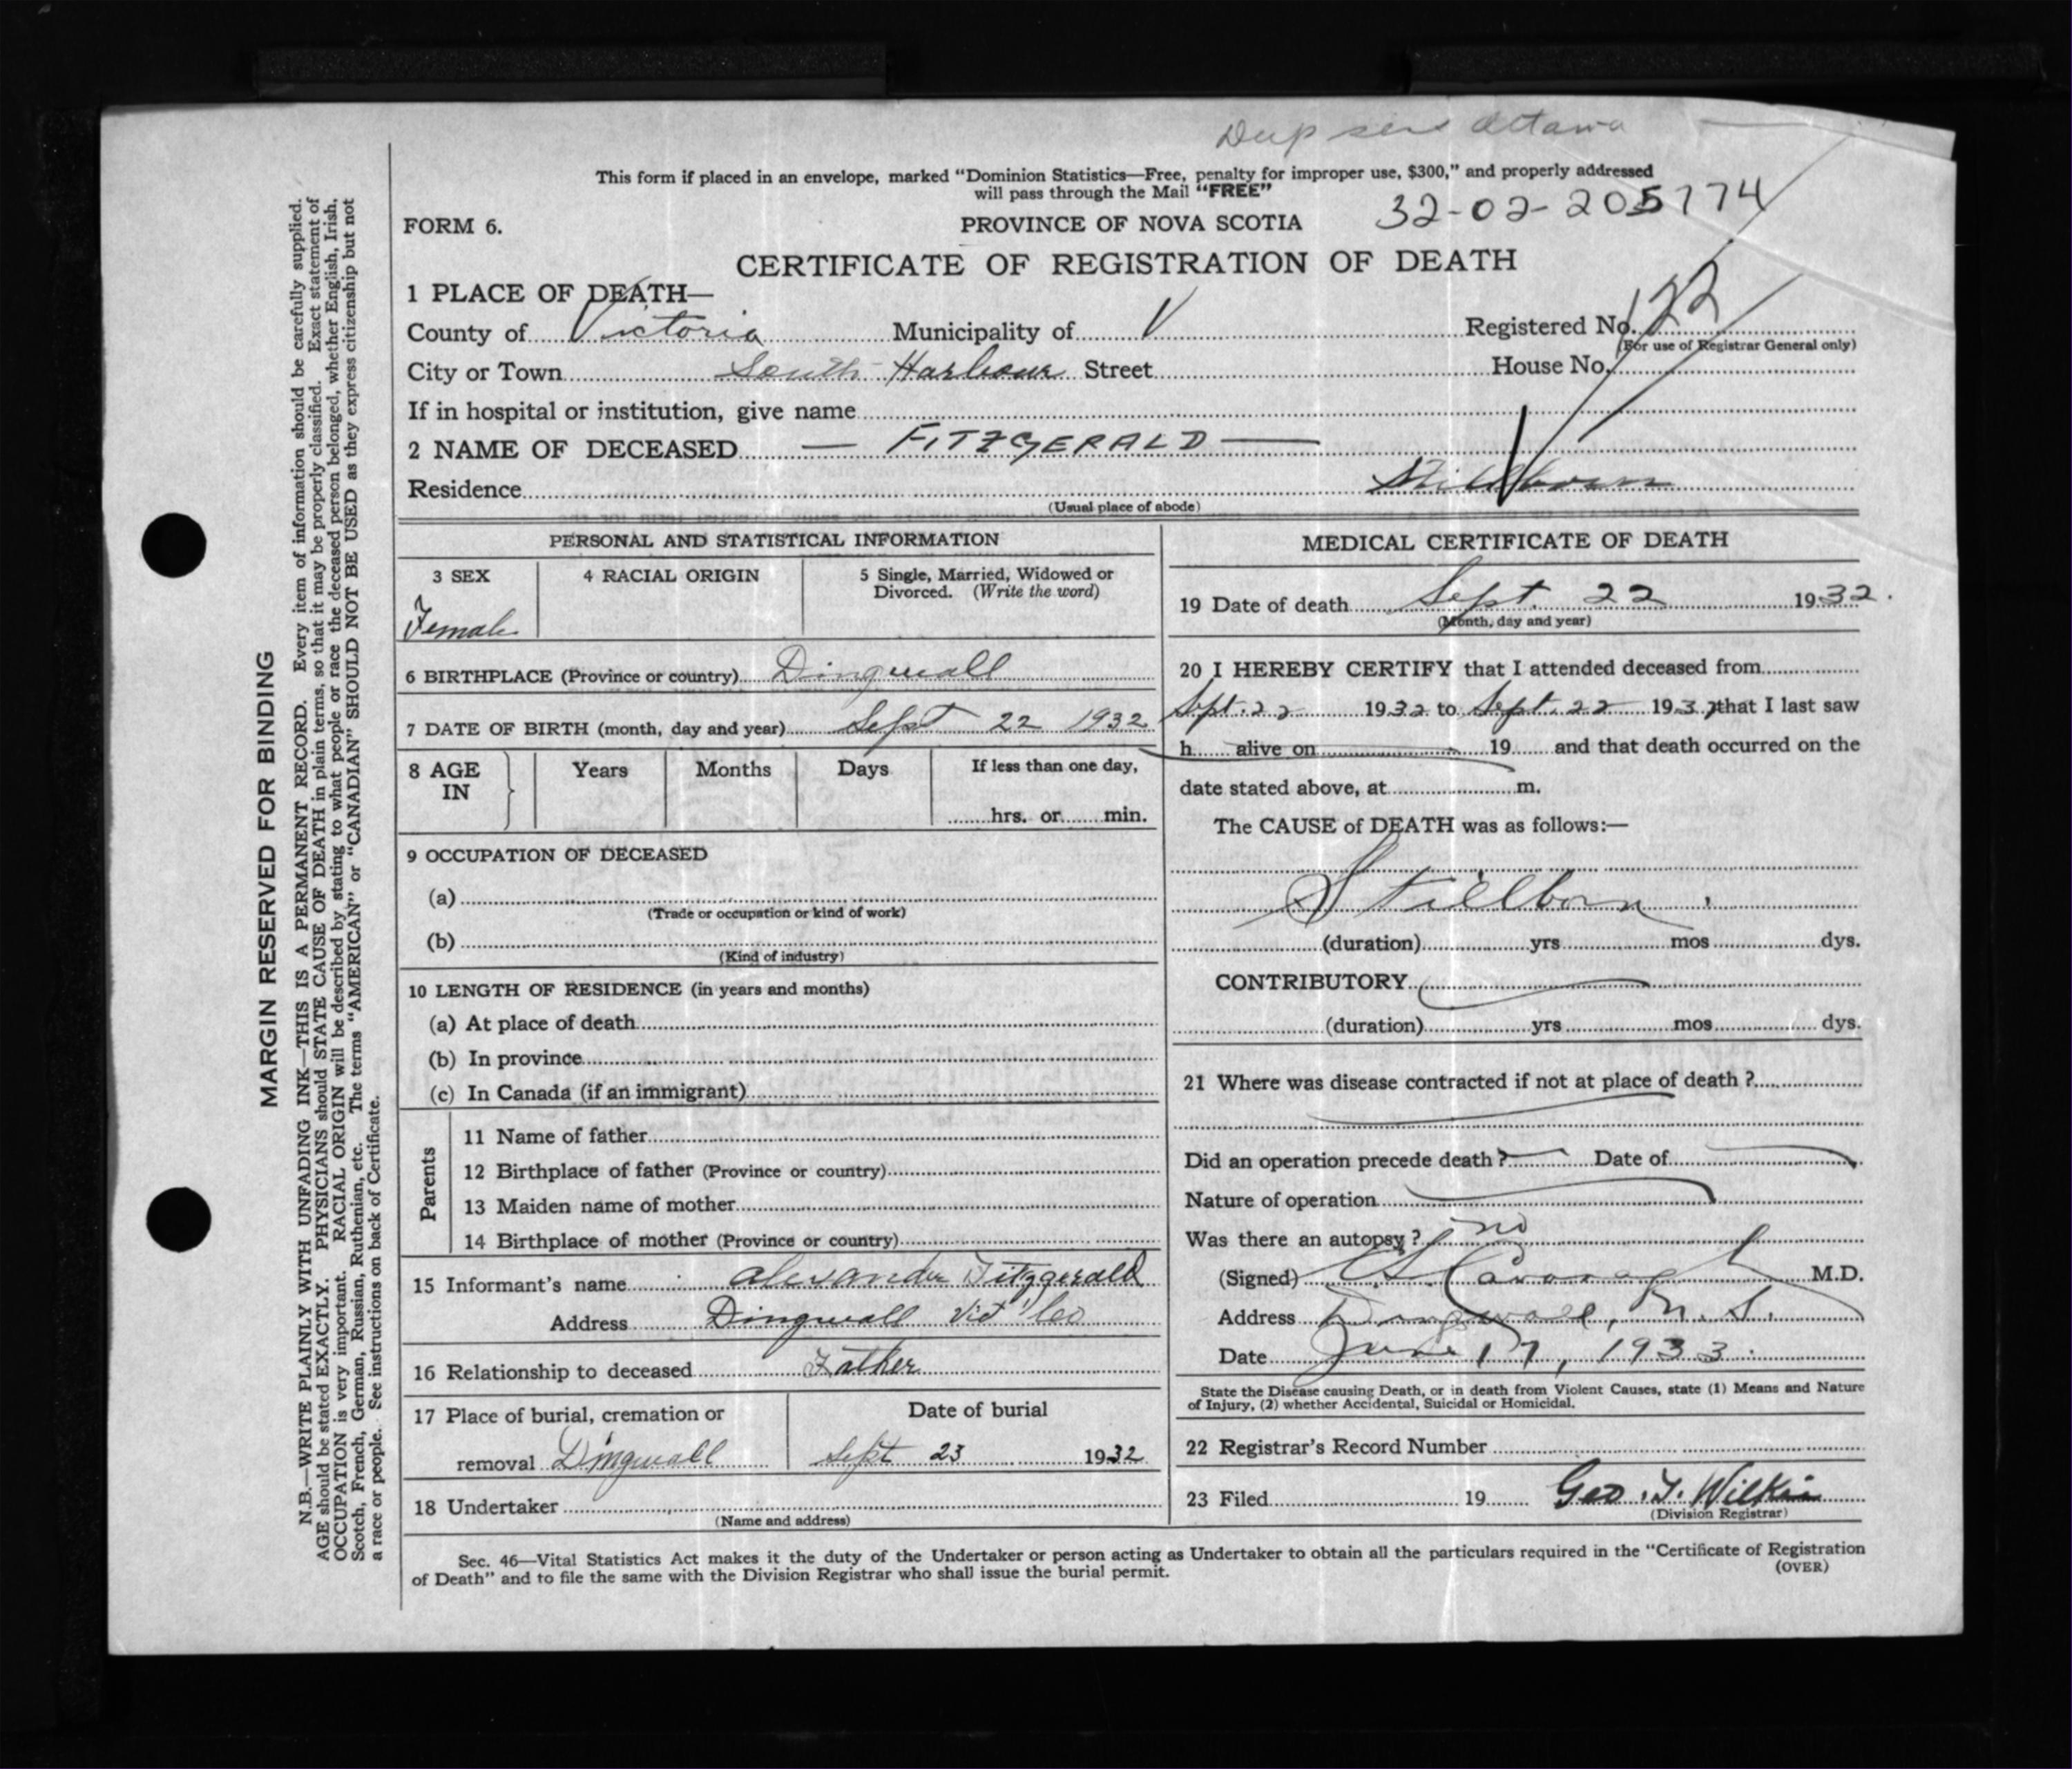 Dup sent Ottawa
This form if placed in an envelope, marked "Dominion Statistics—Free, penalty for improper use, $300," and properly addressed
will pass through the Mail "FREE"
32-02-205774
FORM 6.
PROVINCE OF NOVA SCOTIA
CERTIFICATE OF REGISTRATION OF DEATH
1 PLACE OF DEATH—
County of Victoria Municipality of V Registered No. 122
(For use of Registrar General only)
City or Town South Harbour Street House No.
If in hospital or institution, give name
2 NAME OF DECEASED — FITZGERALD —
Residence Stillborn
(Usual place of abode)
PERSONAL AND STATISTICAL INFORMATION
3 SEX 4 RACIAL ORIGIN 5 Single, Married, Widowed or
Divorced. (Write the word)
Female
6 BIRTHPLACE (Province or country) Dingwall
7 DATE OF BIRTH (month, day and year) Sept 22 1932
8 AGE IN Years Months Days If less than one day,
hrs. or min.
9 OCCUPATION OF DECEASED
(a)
(Trade or occupation or kind of work)
(b)
(Kind of industry)
10 LENGTH OF RESIDENCE (in years and months)
(a) At place of death
(b) In province
(c) In Canada (if an immigrant)
Parents
11 Name of father
12 Birthplace of father (Province or country)
13 Maiden name of mother
14 Birthplace of mother (Province or country)
15 Informant's name Alexander Fitzgerald
Address Dingwall Vic Co
16 Relationship to deceased Father
17 Place of burial, cremation or Date of burial
removal Dingwall Sept 23 1932
18 Undertaker
(Name and address)
MEDICAL CERTIFICATE OF DEATH
19 Date of death Sept. 22 1932.
(Month, day and year)
20 I HEREBY CERTIFY that I attended deceased from
Sept. 22 1932 to Sept. 22 1932, that I last saw
h alive on 19 and that death occurred on the
date stated above, at m.
The CAUSE of DEATH was as follows:—
Stillborn.
(duration) yrs mos dys.
CONTRIBUTORY
(duration) yrs mos dys.
21 Where was disease contracted if not at place of death ?
Did an operation precede death ? Date of
Nature of operation
Was there an autopsy ? no
(Signed) Cavanagh M.D.
Address Dingwall, N. S.
Date June 17, 1933.
State the Disease causing Death, or in death from Violent Causes, state (1) Means and Nature
of Injury, (2) whether Accidental, Suicidal or Homicidal.
22 Registrar's Record Number
23 Filed 19 Geo. T. Wilkie
(Division Registrar)
Sec. 46—Vital Statistics Act makes it the duty of the Undertaker or person acting as Undertaker to obtain all the particulars required in the "Certificate of Registration
of Death" and to file the same with the Division Registrar who shall issue the burial permit.
(OVER)
MARGIN RESERVED FOR BINDING
N.B.—WRITE PLAINLY WITH UNFADING INK—THIS IS A PERMANENT RECORD. Every item of information should be carefully supplied.
AGE should be stated EXACTLY. PHYSICIANS should STATE CAUSE OF DEATH in plain terms, so that it may be properly classified. Exact statement of
OCCUPATION is very important. RACIAL ORIGIN will be described by stating to what people or race the deceased person belonged, whether English, Irish,
Scotch, French, German, Russian, Ruthenian, etc. The terms "AMERICAN" or "CANADIAN" SHOULD NOT BE USED as they express citizenship but not
a race or people. See instructions on back of Certificate.